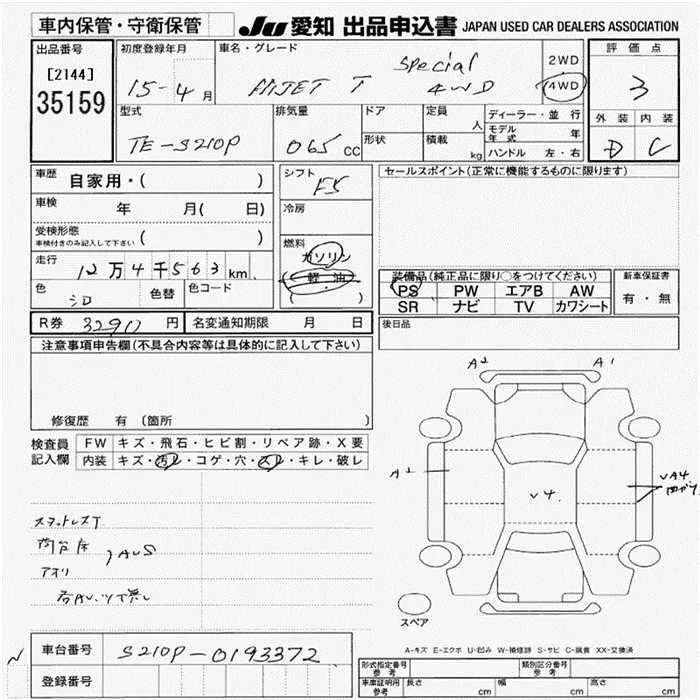 車内保管・守衛保管
JU 愛知 出品申込書 JAPAN USED CAR DEALERS ASSOCIATION
出品番号
[2144]
35159
初度登録年月
15-4月
車名・グレード
HIJET T Special 4WD
2WD
4WD
評価点
3
外装 内装
D C
型式
TE-S210P
排気量
065 CC
ドア
形状
定員 人
積載 kg
ディーラー・並行
モデル年式 年
ハンドル 左・右
車歴 自家用・( )
車検 年 月( 日)
受検形態
車検付きのみ記入して下さい ( )
走行 12万4千563km
色 シロ 色替
色コード
R券 32917円
名変通知期限 月 日
シフト
F5
冷房
燃料
ガソリン
軽油
( )
セールスポイント(正常に機能するものに限ります)
装備品(純正品に限り○をつけてください)
PS PW エアB AW
SR ナビ TV カワシート
新車保証書
有・無
後日品
注意事項申告欄(不具合内容等は具体的に記入して下さい)
修復歴 有 〔箇所 〕
検査員記入欄
FW キズ・飛石・ヒビ割・リペア跡・X要
内装 キズ・汚レ・コゲ・穴・スレ・キレ・破レ
スタットレスT
荷台床
アオリ
AUS
A2 A1
A2
V4.
VA4
スペア
A-キズ E-エクボ U-凹み W-補修跡 S-サビ C-腐食 XX-交換済
車台番号 S210P-0193372
登録番号
形式指定番号 参考
類別区分番号 参考
車庫証明用 参考 長さ cm 幅 cm 高さ cm